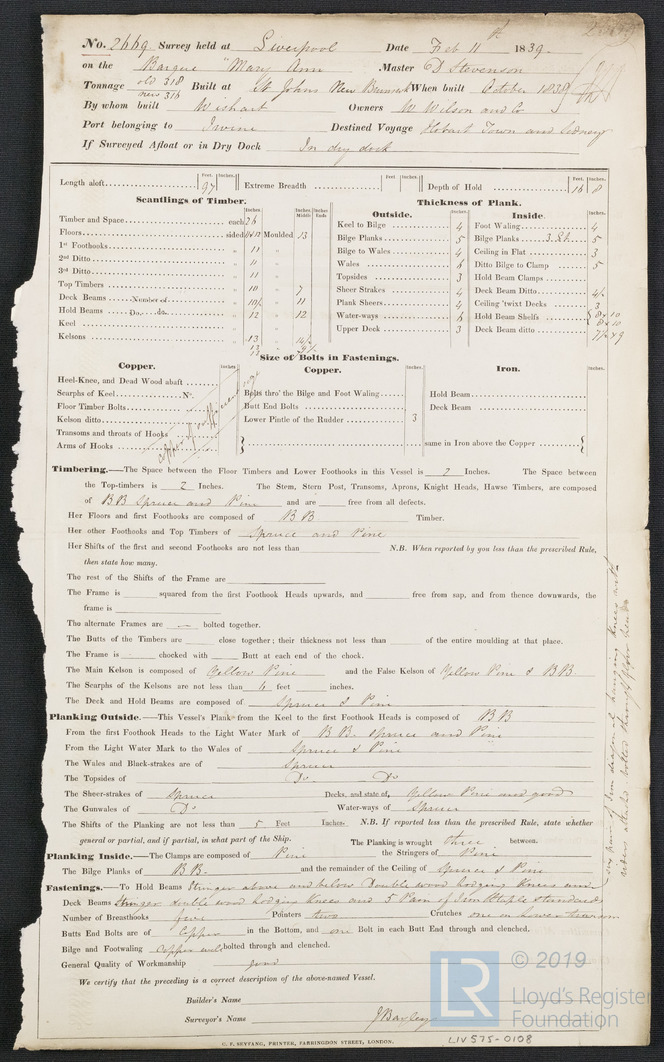 No. 2669 Survey held at Liverpool Date Feb 11th 1839
on the Barque "Mary Ann Master D Stevenson
Tonnage old 318 new 316 Built at St Johns New Brunswk When built October 1838
By whom built Wishart Owners W Wilson and Co
Port belonging to Irvine Destined Voyage Hobart Town and Sidney
If Surveyed Afloat or in Dry Dock In dry dock
Length aloft Feet. 97 Inches. Extreme Breadth Feet Inches. Depth of Hold Feet. 16 Inches. 8
Scantlings of Timber. Thickness of Plank.
Outside. Inside.
Timber and Space each 26 Keel to Bilge 4 Foot Waling 4
Floors sided Moulded 13 Bilge Planks 5 Bilge Planks 5
1st Foothooks " 11 " Bilge to Wales 4 Ceiling in Flat 3
2nd Ditto " 11 " Wales 6 Ditto Bilge to Clamp 5
3rd Ditto " 11 " Topsides 3 Hold Beam Clamps
Top Timbers " 10 7 Sheer Strakes 4 Deck Beam Ditto 4½
Deck Beams Number of " 10½ 11 Plank Sheers 4 Ceiling 'twixt Decks 3
Hold Beams Do. do. " 12 12 Water-ways 6 Hold Beam Shelfs 8 x 10
Keel " Upper Deck 3 Deck Beam ditto 7½ x 9
Kelsons " 13
Size of Bolts in Fastenings.
Copper. Copper. Iron.
Heel-Knee, and Dead Wood abaft
Scarphs of Keel No. Bolts thro' the Bilge and Foot Waling Hold Beam
Floor Timber Bolts Butt End Bolts Deck Beam
Kelson ditto Lower Pintle of the Rudder 3
Transoms and throats of Hooks
Arms of Hooks same in Iron above the Copper
copper of sufficient size
Timbering.—The Space between the Floor Timbers and Lower Foothooks in this Vessel is 2 Inches. The Space between
the Top-timbers is 2 Inches. The Stem, Stern Post, Transoms, Aprons, Knight Heads, Hawse Timbers, are composed
of BB Spruce and Pine and are free from all defects.
Her Floors and first Foothooks are composed of BB Timber.
Her other Foothooks and Top Timbers of Spruce and Pine
Her Shifts of the first and second Foothooks are not less than N.B. When reported by you less than the prescribed Rule,
then state how many.
The rest of the Shifts of the Frame are
The Frame is squared from the first Foothook Heads upwards, and free from sap, and from thence downwards, the
frame is
The alternate Frames are — bolted together.
The Butts of the Timbers are close together; their thickness not less than of the entire moulding at that place.
The Frame is chocked with Butt at each end of the chock.
The Main Kelson is composed of Yellow Pine and the False Kelson of Yellow Pine & BB.
The Scarphs of the Kelsons are not less than 6 feet inches.
The Deck and Hold Beams are composed of Spruce & Pine
Planking Outside.—This Vessel's Plank from the Keel to the first Foothook Heads is composed of BB
From the first Foothook Heads to the Light Water Mark of BB. Spruce and Pine
From the Light Water Mark to the Wales of Spruce & Pine
The Wales and Black-strakes are of Spruce
The Topsides of Do. Do
The Sheer-strakes of Spruce Decks, and state of, Yellow Pine and good
The Gunwales of Do Water-ways of Spruce
The Shifts of the Planking are not less than 5 Feet Inches. N.B. If reported less than the prescribed Rule, state whether
general or partial, and if partial, in what part of the Ship. The Planking is wrought three between.
Planking Inside.—The Clamps are composed of Pine the Stringers of Pine
The Bilge Planks of BB. and the remainder of the Ceiling of Spruce & Pine
Fastenings.—To Hold Beams Stringer above and below Double wood lodging Knees and
Deck Beams Stringer double wood lodging Knees and 5 Pair of Iron Staple Standards
Number of Breasthooks five Pointers two Crutches one
Butts End Bolts are of Copper in the Bottom, and one Bolt in each Butt End through and clenched.
Bilge and Footwaling Copper well bolted through and clenched.
General Quality of Workmanship good
We certify that the preceding is a correct description of the above-named Vessel.
Builder's Name
Surveyor's Name J Bayley
C. F. SEYFANG, PRINTER, FARRINGDON STREET, LONDON.
LIV575-0108
© 2019
LR
Lloyd's Register
Foundation
pair of Iron diagonal hanging Knees with
riders attached bolted through floor heads